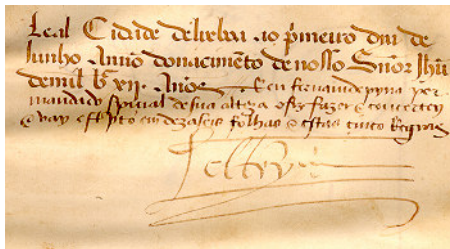 Leal Cidade delixboa .io pmeiro dia de
Junho . Anno donacimẽto de nosso Senõr Jhũ
demil bᶜ xij. Anos E eu fernam de pyna per
mandado spicial de sua alteza o fiz fazer & concertey
& vay esscprito em dezaseis folhas & estas cinco Regras